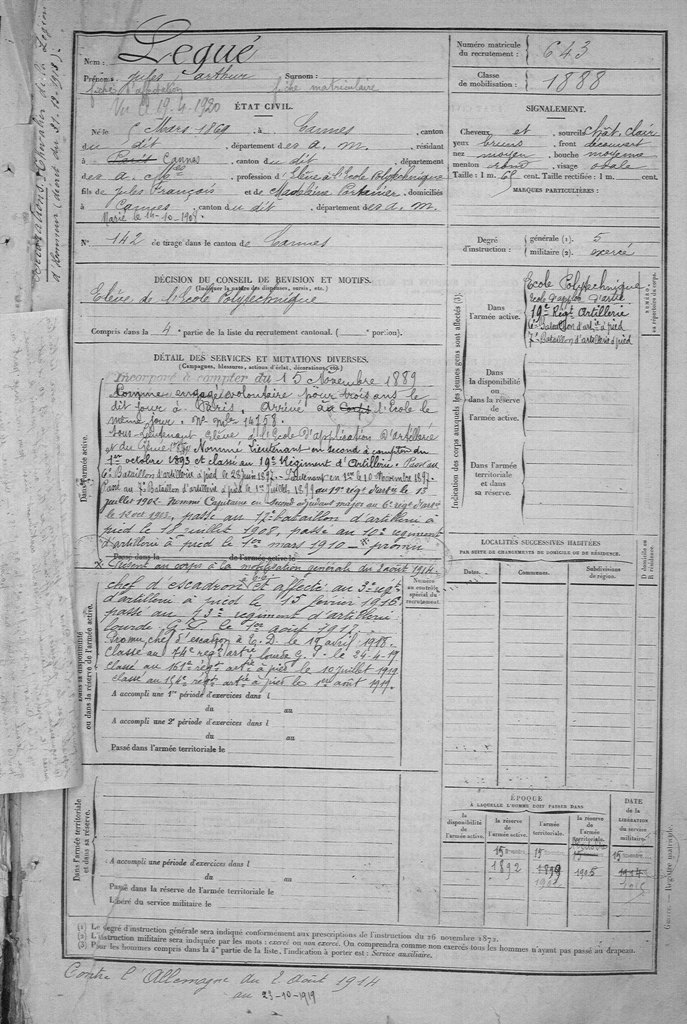 Nom : Legué
Prénoms : Jules Arthur Surnom :
fiche matriculaire
Vu le 19.4.1920
ÉTAT CIVIL.
Né le 5 Mars 1869, à Cannes, canton
du dit, département des A. M., résidant
à Paris Cannes, canton du dit, département
des A. Mes, profession d'Elève à l'Ecole Polytechnique
fils de Jules François et de Madeleine, domiciliés
à Cannes, canton du dit, département des A. M.
Marié le 14-10-1908.
N° 142 de tirage dans le canton de Cannes
DÉCISION DU CONSEIL DE REVISION ET MOTIFS.
(Indiquer la nature des dispenses, sursis, etc.)
Elève de l'Ecole Polytechnique
Compris dans la 4e partie de la liste du recrutement cantonal. ( portion).
DÉTAIL DES SERVICES ET MUTATIONS DIVERSES.
(Campagnes, blessures, actions d'éclat, décorations, etc.)
Dans l'armée active.
Incorporé à compter du 15 Novembre 1889
Comme engagé volontaire pour trois ans le
dit jour à Paris. Arrivé au Corps à l'Ecole le
même jour. No mle 14758.
Sous-lieutenant élève à l'Ecole D'application D'artillerie
et du Génie Nommé Lieutenant en Second à compter du
1er octobre 1893 et classé au 19e Régiment d'Artillerie. Passé au
6e Bataillon d'artillerie à pied le 1897. Lieutenant en 1er le 10 Novembre 1897.
Passé au 7e Bataillon d'artillerie à pied le 1er Juillet 1899 au 19e régt d'artie le 13
juillet 1902. Nommé Capitaine en Second adjudant major au 6e régt d'artie
le 12 oct 1903, passé au 12e bataillon d'artillerie à
pied le 18 juillet 1908, passé au 10e régiment
d'artillerie à pied le 1er mars 1910 - promu
Passé dans la de l'armée active le
Présent au corps à la mobilisation générale du 2 août 1914.
Numéro au contrôle spécial du recrutement.
Dans la disponibilité ou dans la réserve de l'armée active.
chef d'escadron et affecté au 3e régt
d'artillerie à Nice le 15 février 1916
passé au 93e régiment d'artillerie
lourde G.P. le 1er août 1917.
Promu chef d'escadron à T. D. le 19 avril 1918.
Classé au 74e régt artie lourde G. P. le 24-4-19
classé au 161e régt artie à pied le 10 juillet 1919
classé au 154e régt artie à pied le 1er août 1919.
A accompli une 1re période d'exercices dans l
du au
A accompli une 2e période d'exercices dans l
du au
Passé dans l'armée territoriale le
Dans l'armée territoriale et dans sa réserve.
A accompli une période d'exercices dans l
du au
Passé dans la réserve de l'armée territoriale le
Libéré du service militaire le
Numéro matricule du recrutement : 643
Classe de mobilisation : 1888
SIGNALEMENT.
Cheveux et sourcils chât. clair
yeux bruns, front découvert
nez moyen, bouche moyenne
menton rond, visage ovale
Taille : 1 m. 65 cent. Taille rectifiée : 1 m. cent.
MARQUES PARTICULIÈRES :
Degré d'instruction : générale (1). 5
militaire (2). exercé
Indication des corps auxquels les jeunes gens sont affectés (3).
Dans l'armée active.
Ecole Polytechnique
Ecole d'applon d'artie
19e Régt Artillerie
6e Bataillon d'artie à pied
7e Bataillon d'artillerie à pied
NUMÉRO au répertoire du corps.
Dans la disponibilité ou dans la réserve de l'armée active.
Dans l'armée territoriale et dans sa réserve.
LOCALITÉS SUCCESSIVES HABITÉES
PAR SUITE DE CHANGEMENTS DE DOMICILE OU DE RÉSIDENCE.
Dates. Communes. Subdivisions de région. D domicile ou R résidence.
ÉPOQUE
À LAQUELLE L'HOMME DOIT PASSER DANS
la disponibilité de l'armée active.
la réserve de l'armée active.
l'armée territoriale.
la réserve de l'armée territoriale.
DATE de la LIBÉRATION du service militaire.
1892 1899 1905 1914
Guerre. — Registre matricule.
(1) Le degré d'instruction générale sera indiqué conformément aux prescriptions de l'instruction du 26 novembre 1872.
(2) L'instruction militaire sera indiquée par les mots : exercé ou non exercé. On comprendra comme non exercés tous les hommes n'ayant pas passé au drapeau.
(3) Pour les hommes compris dans la 4e partie de la liste, l'indication à porter est : Service auxiliaire.
Contre l'Allemagne du 2 Août 1914
au 23-10-1919